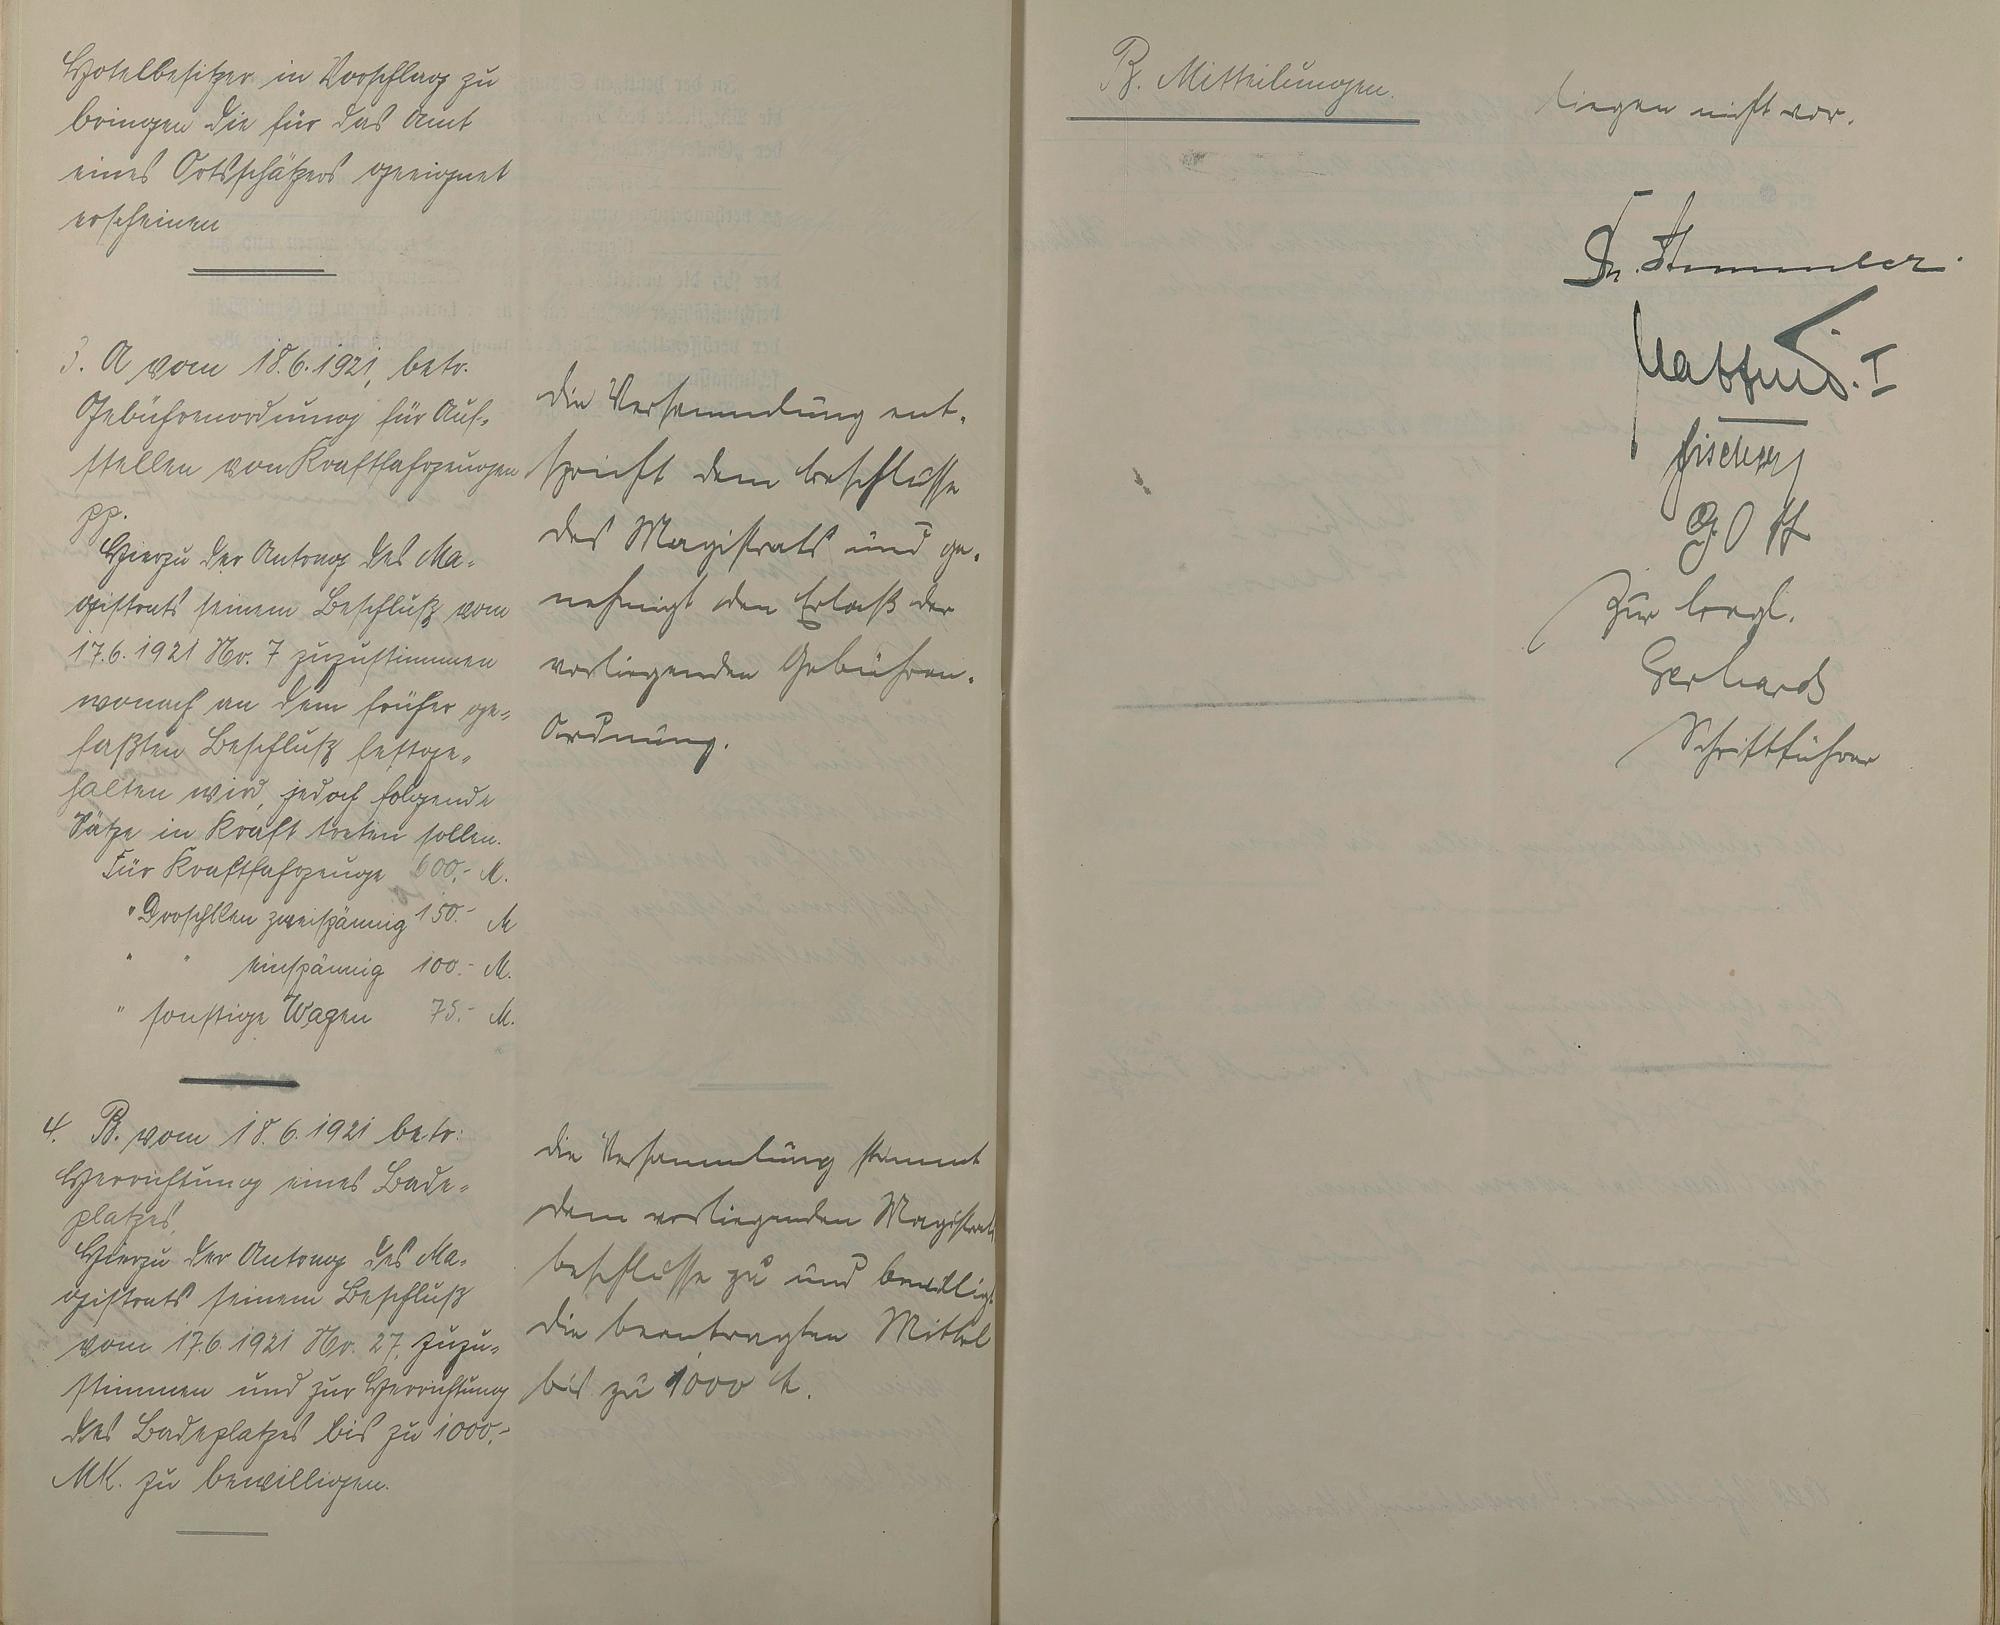 Hotelbesitzer in Vorschlag zu
bringen die für das Amt
eines Ortsschätzers geeignet
erscheinen
3. A vom 18.6.1921, betr.
Gebührenordnung für Auf-
stellen von Kraftfahrzeugen
pp.
Hierzu der Antrag des Ma-
gistrats seinem Beschluß vom
17.6.1921 Nr. 7 zuzustimmen
wonach an dem früher ge-
faßten Beschluß festge-
halten wird, jedoch folgende
Sätze in Kraft treten sollen.
Für Kraftfahrzeuge 600,- M.
" Droschken zweispännig 150.- M
" " einspännig 100.- M.
" sonstige Wagen 75.- M.
die Versammlung ent-
spricht dem Beschlusse
des Magistrats und ge-
nehmigt den Erlaß der
vorliegenden Gebühren-
Ordnung.
4. B. vom 18.6.1921 betr:
Herrichtung eines Bade-
platzes,
Hierzu der Antrag des Ma-
gistrats seinem Beschluß
vom 17.6.1921 Nr. 27, zuzu-
stimmen und zur Herrichtung
des Badeplatzes bis zu 1000,-
MK. zu bewilligen.
die Versammlung stimmt
dem vorliegenden Magistrats
beschlusse zu und bewilligt
die beantragten Mittel
bis zu 1000 M.
B. Mitteilungen.
liegen nicht vor.
Dr. Stemmler.
I
Fischer
Gerhards
Schriftführer